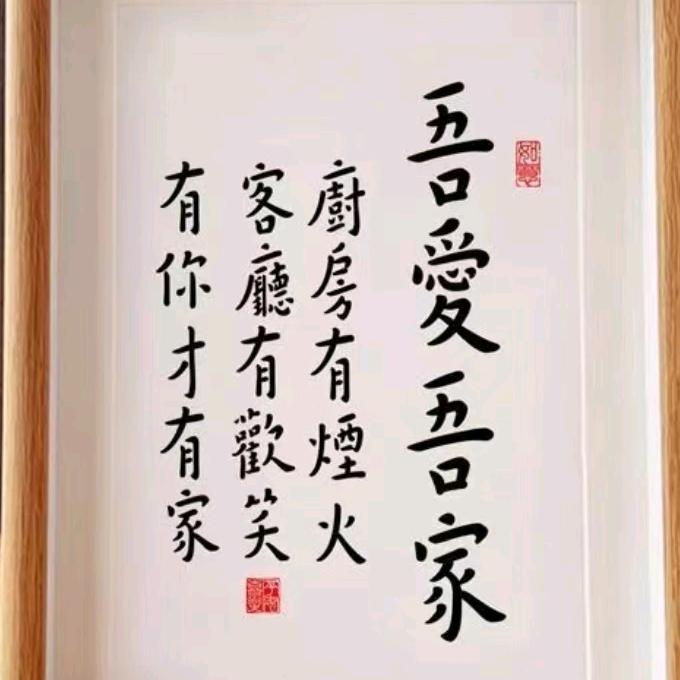 吾愛吾家
廚房有煙火
客廳有歡笑
有你才有家
如意